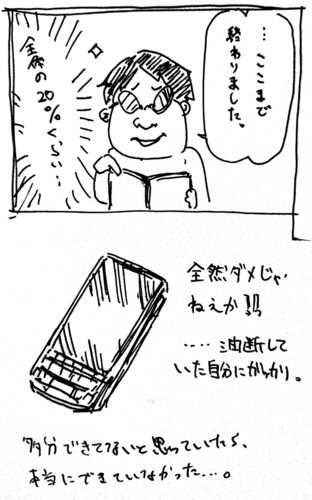 …ここまで
終わりました。
全然の
20%くらい…
全然ダメじゃ
ねえか!!
……油断して
いた自分にがっかり。
多分できてないと思っていたら、
本当にできていなかった…。